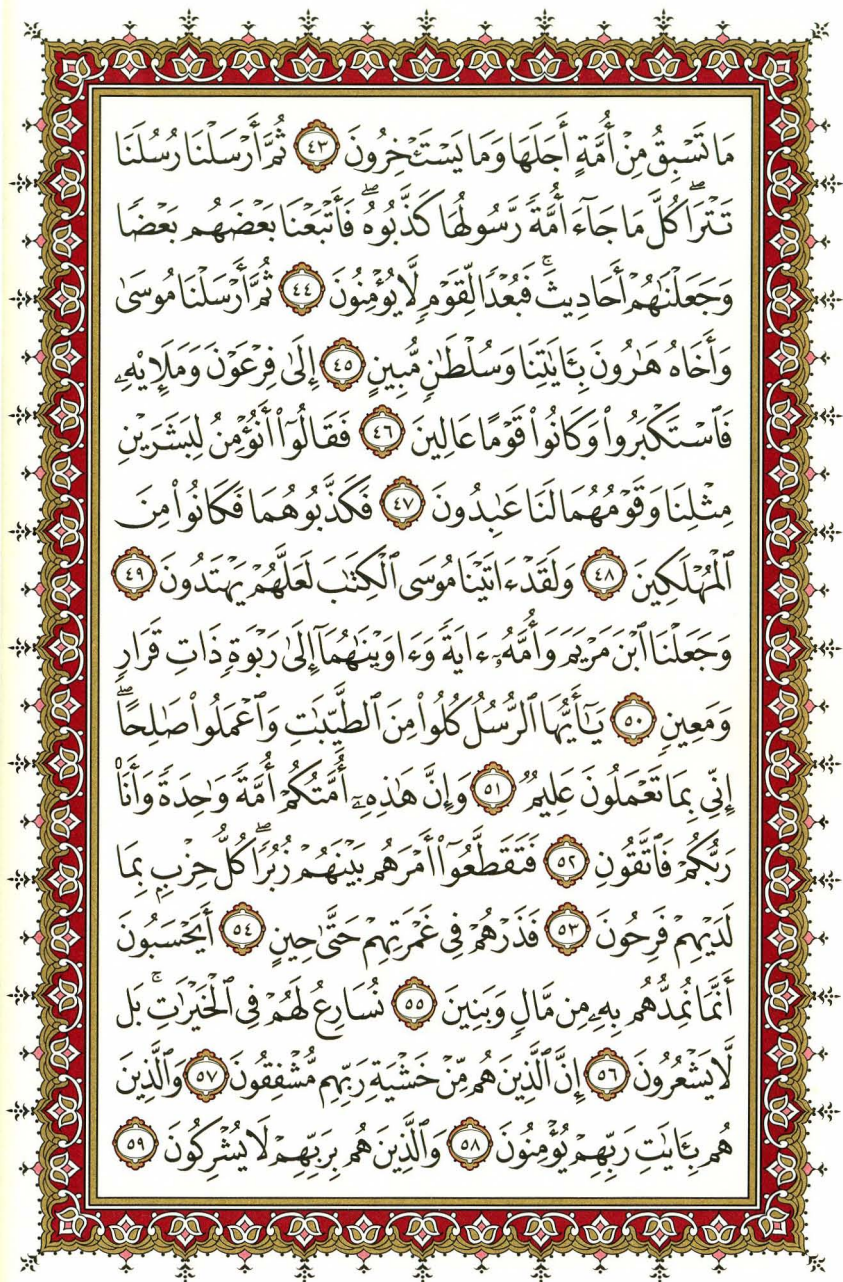 مَا تَسْبِقُ مِنْ أُمَّةٍ أَجَلَهَا وَمَا يَسْتَـْٔخِرُونَ ٤٣ ثُمَّ أَرْسَلْنَا رُسُلَنَا
تَتْرَاۖ كُلَّ مَا جَآءَ أُمَّةً رَّسُولُهَا كَذَّبُوهُۖ فَأَتْبَعْنَا بَعْضَهُم بَعْضًا
وَجَعَلْنَٰهُمْ أَحَادِيثَۚ فَبُعْدًا لِّقَوْمٍ لَّا يُؤْمِنُونَ ٤٤ ثُمَّ أَرْسَلْنَا مُوسَىٰ
وَأَخَاهُ هَٰرُونَ بِـَٔايَٰتِنَا وَسُلْطَٰنٍ مُّبِينٍ ٤٥ إِلَىٰ فِرْعَوْنَ وَمَلَإِي۟هِۦ
فَٱسْتَكْبَرُوا۟ وَكَانُوا۟ قَوْمًا عَالِينَ ٤٦ فَقَالُوٓا۟ أَنُؤْمِنُ لِبَشَرَيْنِ
مِثْلِنَا وَقَوْمُهُمَا لَنَا عَٰبِدُونَ ٤٧ فَكَذَّبُوهُمَا فَكَانُوا۟ مِنَ
ٱلْمُهْلَكِينَ ٤٨ وَلَقَدْ ءَاتَيْنَا مُوسَى ٱلْكِتَٰبَ لَعَلَّهُمْ يَهْتَدُونَ ٤٩
وَجَعَلْنَا ٱبْنَ مَرْيَمَ وَأُمَّهُۥٓ ءَايَةً وَءَاوَيْنَٰهُمَآ إِلَىٰ رَبْوَةٍ ذَاتِ قَرَارٍ
وَمَعِينٍ ٥٠ يَٰٓأَيُّهَا ٱلرُّسُلُ كُلُوا۟ مِنَ ٱلطَّيِّبَٰتِ وَٱعْمَلُوا۟ صَٰلِحًاۖ
إِنِّى بِمَا تَعْمَلُونَ عَلِيمٌ ٥١ وَإِنَّ هَٰذِهِۦٓ أُمَّتُكُمْ أُمَّةً وَٰحِدَةً وَأَنَا۠
رَبُّكُمْ فَٱتَّقُونِ ٥٢ فَتَقَطَّعُوٓا۟ أَمْرَهُم بَيْنَهُمْ زُبُرًاۖ كُلُّ حِزْبٍۭ بِمَا
لَدَيْهِمْ فَرِحُونَ ٥٣ فَذَرْهُمْ فِى غَمْرَتِهِمْ حَتَّىٰ حِينٍ ٥٤ أَيَحْسَبُونَ
أَنَّمَا نُمِدُّهُم بِهِۦ مِن مَّالٍ وَبَنِينَ ٥٥ نُسَارِعُ لَهُمْ فِى ٱلْخَيْرَٰتِۚ بَل
لَّا يَشْعُرُونَ ٥٦ إِنَّ ٱلَّذِينَ هُم مِّنْ خَشْيَةِ رَبِّهِم مُّشْفِقُونَ ٥٧ وَٱلَّذِينَ
هُم بِـَٔايَٰتِ رَبِّهِمْ يُؤْمِنُونَ ٥٨ وَٱلَّذِينَ هُم بِرَبِّهِمْ لَا يُشْرِكُونَ ٥٩